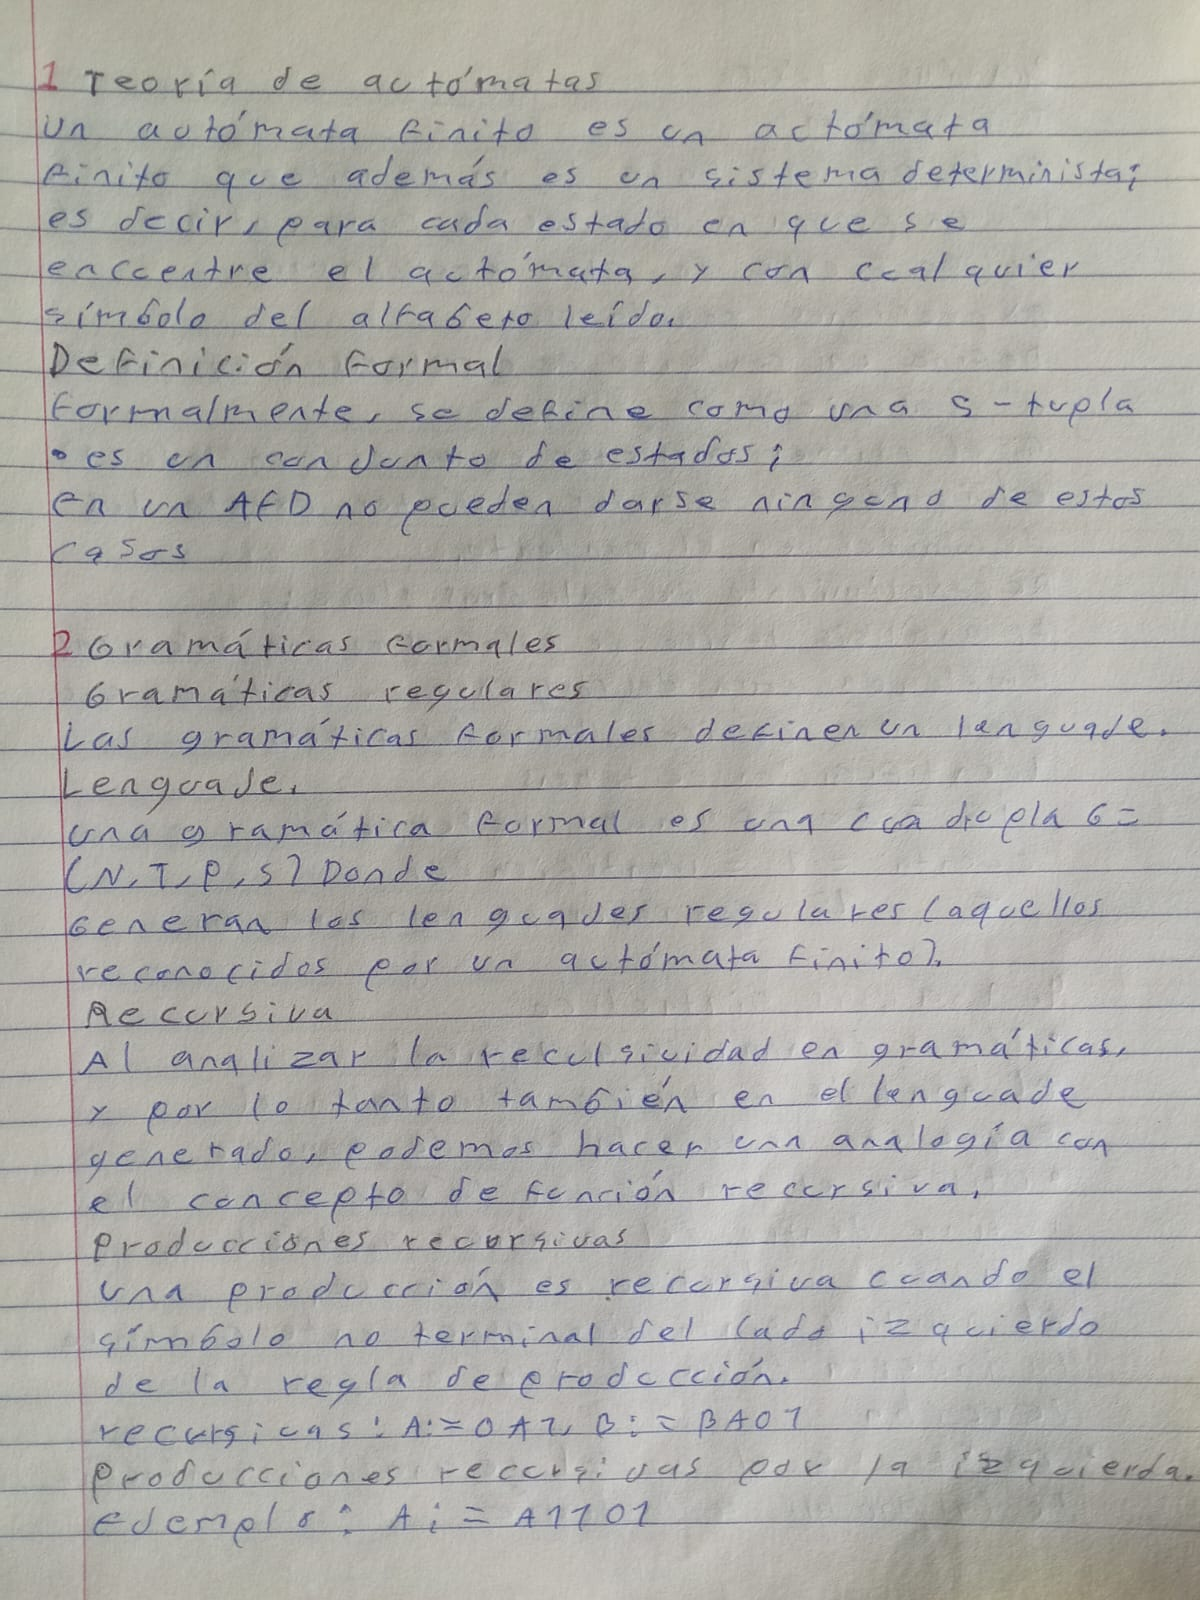 1 Teoría de autómatas
un autómata finito es un autómata
finito que además es un sistema determinista;
es decir, para cada estado en que se
encuentre el autómata, y con cualquier
símbolo del alfabeto leído.
Definición formal
formalmente, se define como una 5-tupla
• es un conjunto de estados;
en un AFD no pueden darse ninguno de estos
casos
2 Gramáticas formales
Gramáticas regulares
Las gramáticas formales definen un lenguaje.
Lenguaje.
una gramática formal es una cuadrupla G=
(N,T,P,S) Donde
Generan los lenguajes regulares (aquellos
reconocidos por un autómata finito).
Recursiva
Al analizar la reculsividad en gramáticas,
y por lo tanto también en el lenguaje
generado, podemos hacer una analogía con
el concepto de función recursiva,
Producciones recursivas
una producción es recursiva cuando el
símbolo no terminal del lado izquierdo
de la regla de producción.
recursicas: A:=0A1, B:=BA01
Producciones recursivas por la izquierda.
ejemplo: A:=A1101